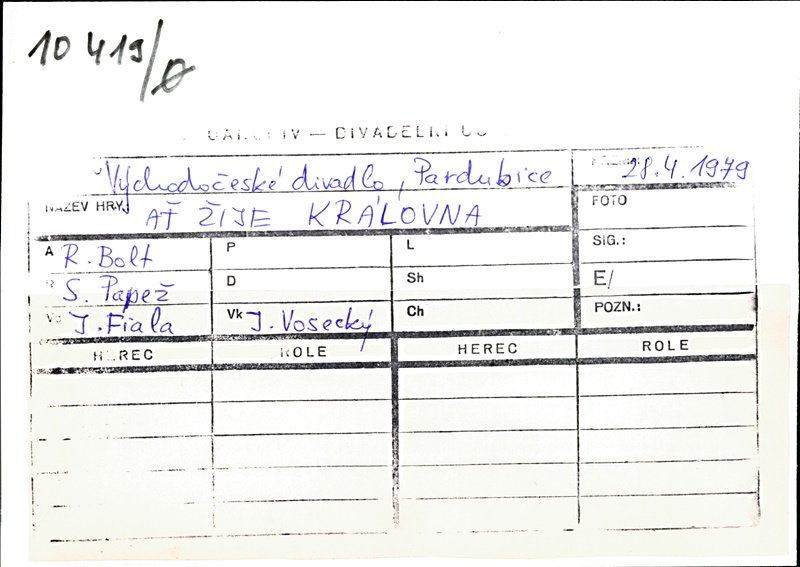 10 419/0
IV — DIVADELNÍ
Východočeské divadlo, Pardubice 28.4.1979
NÁZEV HRY AŤ ŽIJE KRÁLOVNA FOTO
A R. Bolt P L SIG.:
S. Papež D Sh E/
J. Fiala Vk J. Vosecký Ch POZN.:
HEREC ROLE HEREC ROLE